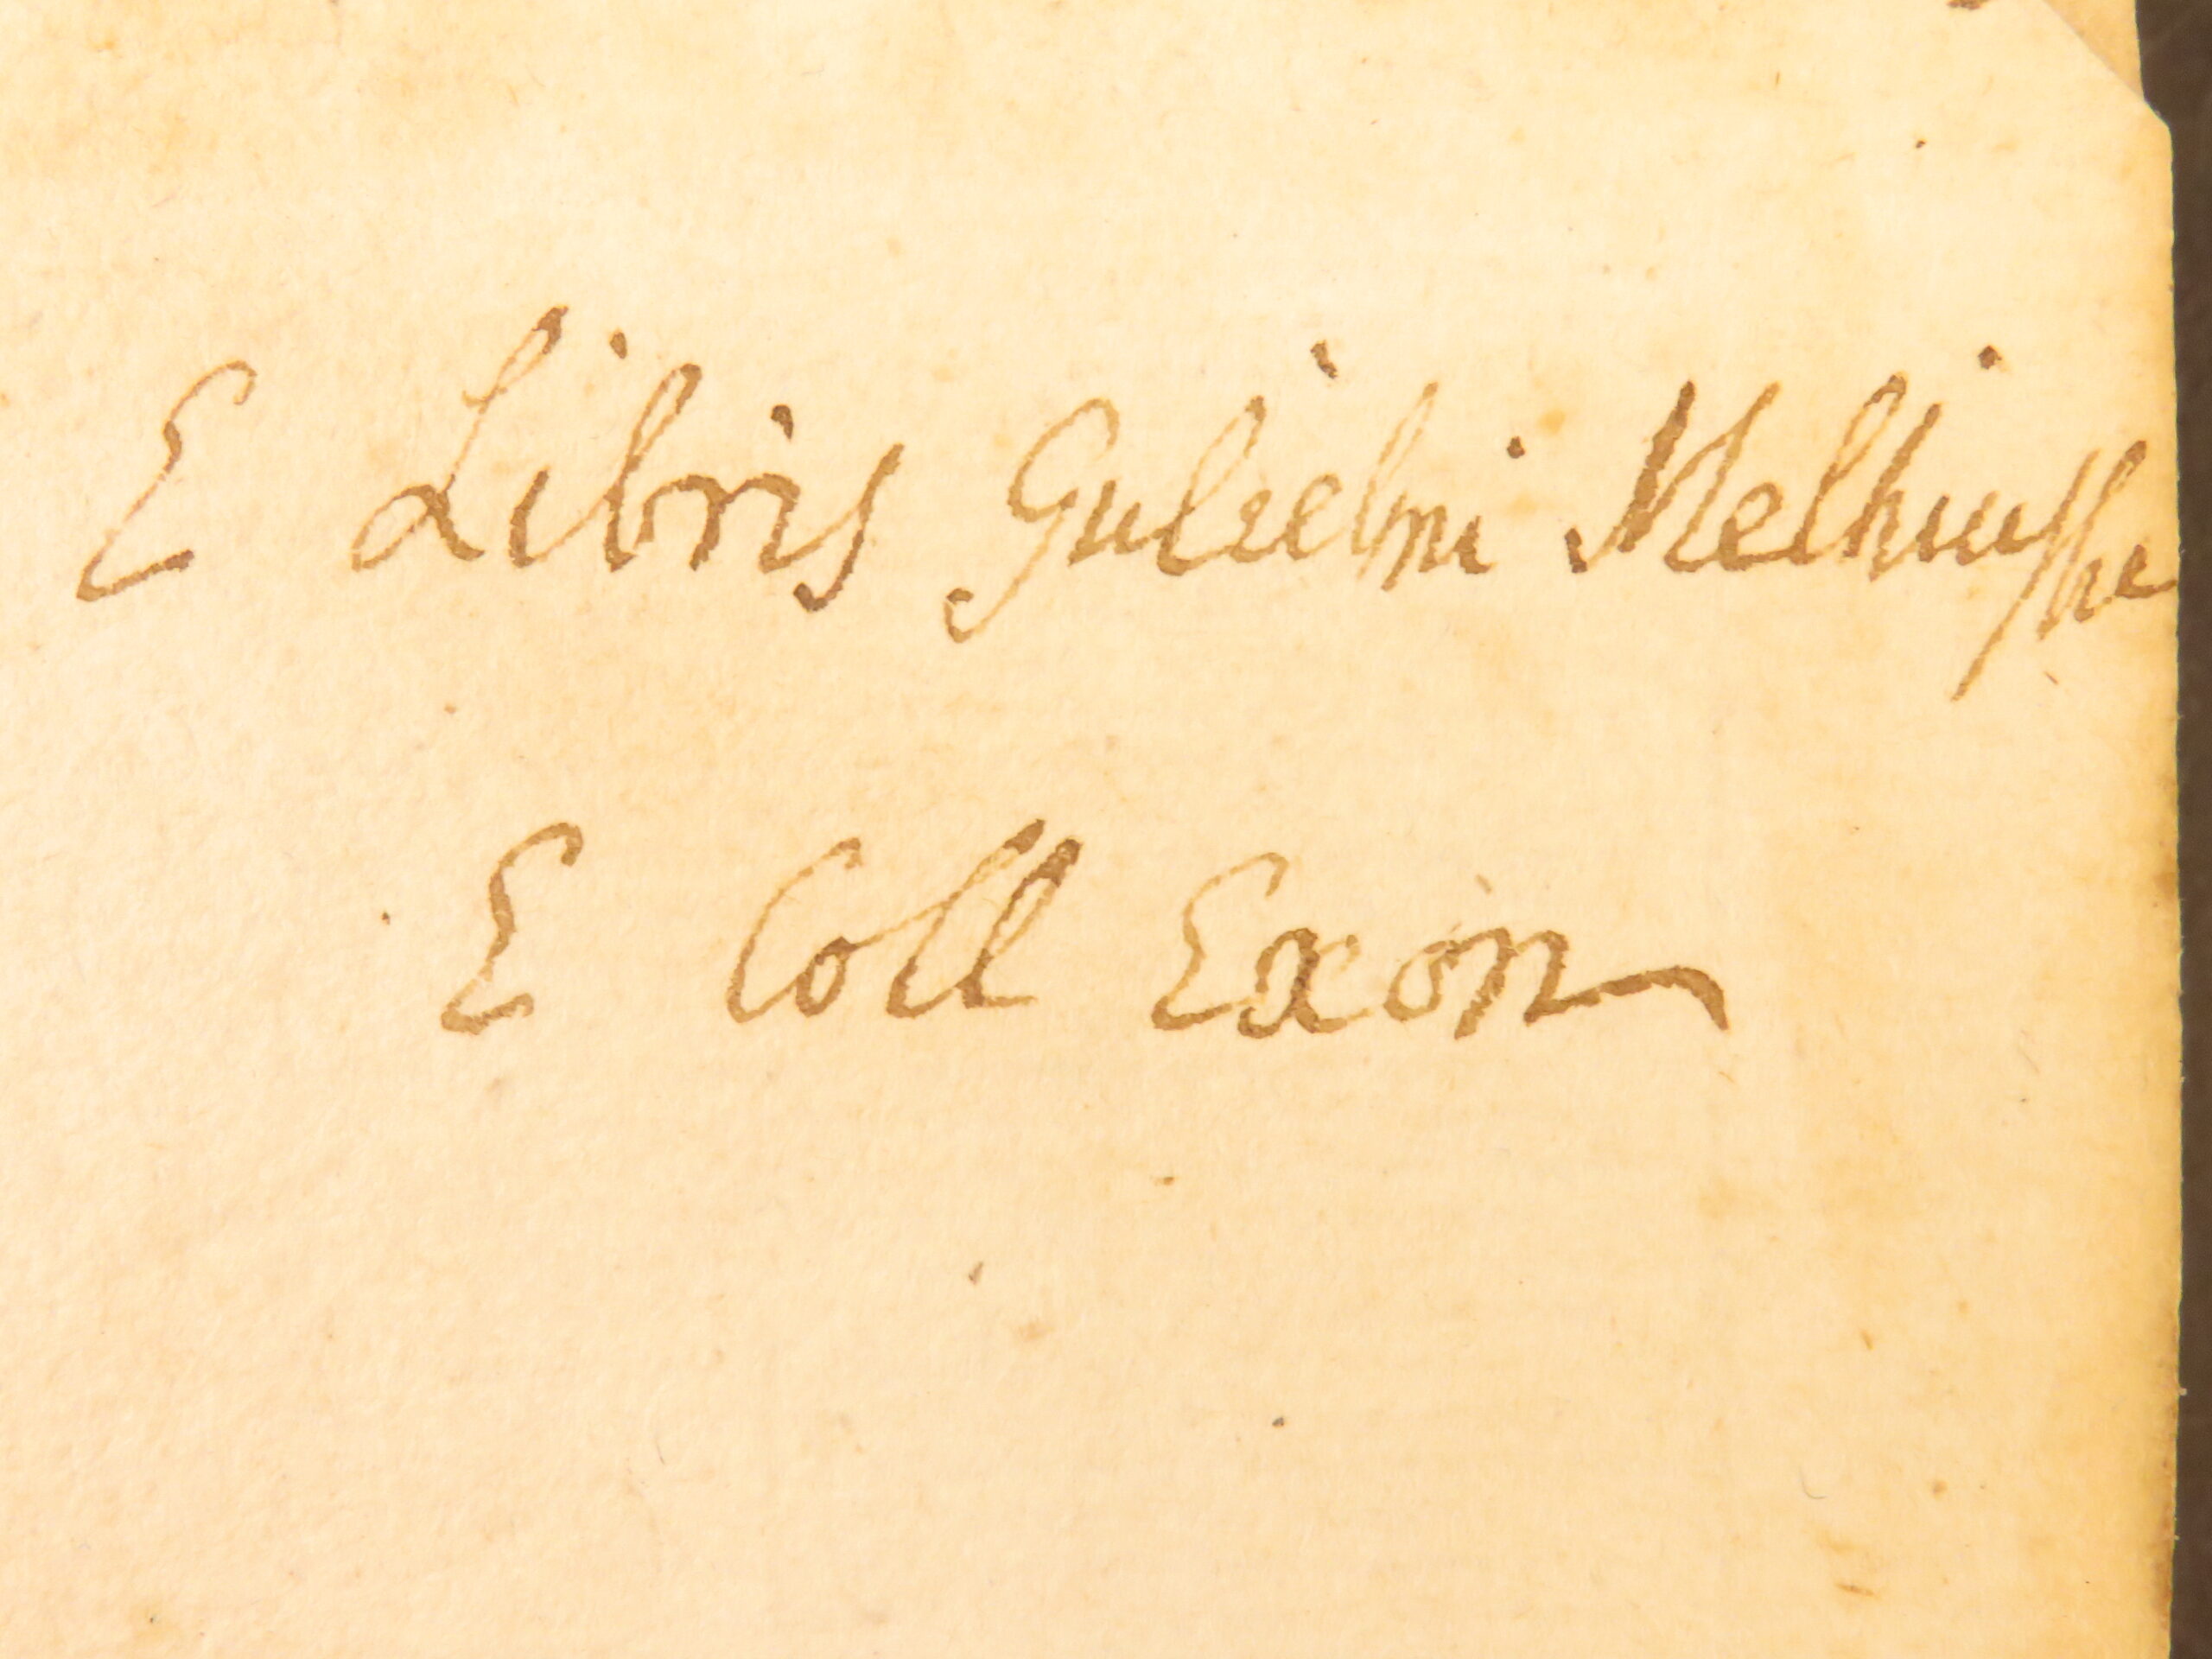 E Libris Gulielmi Melhuishe
E Coll Exon